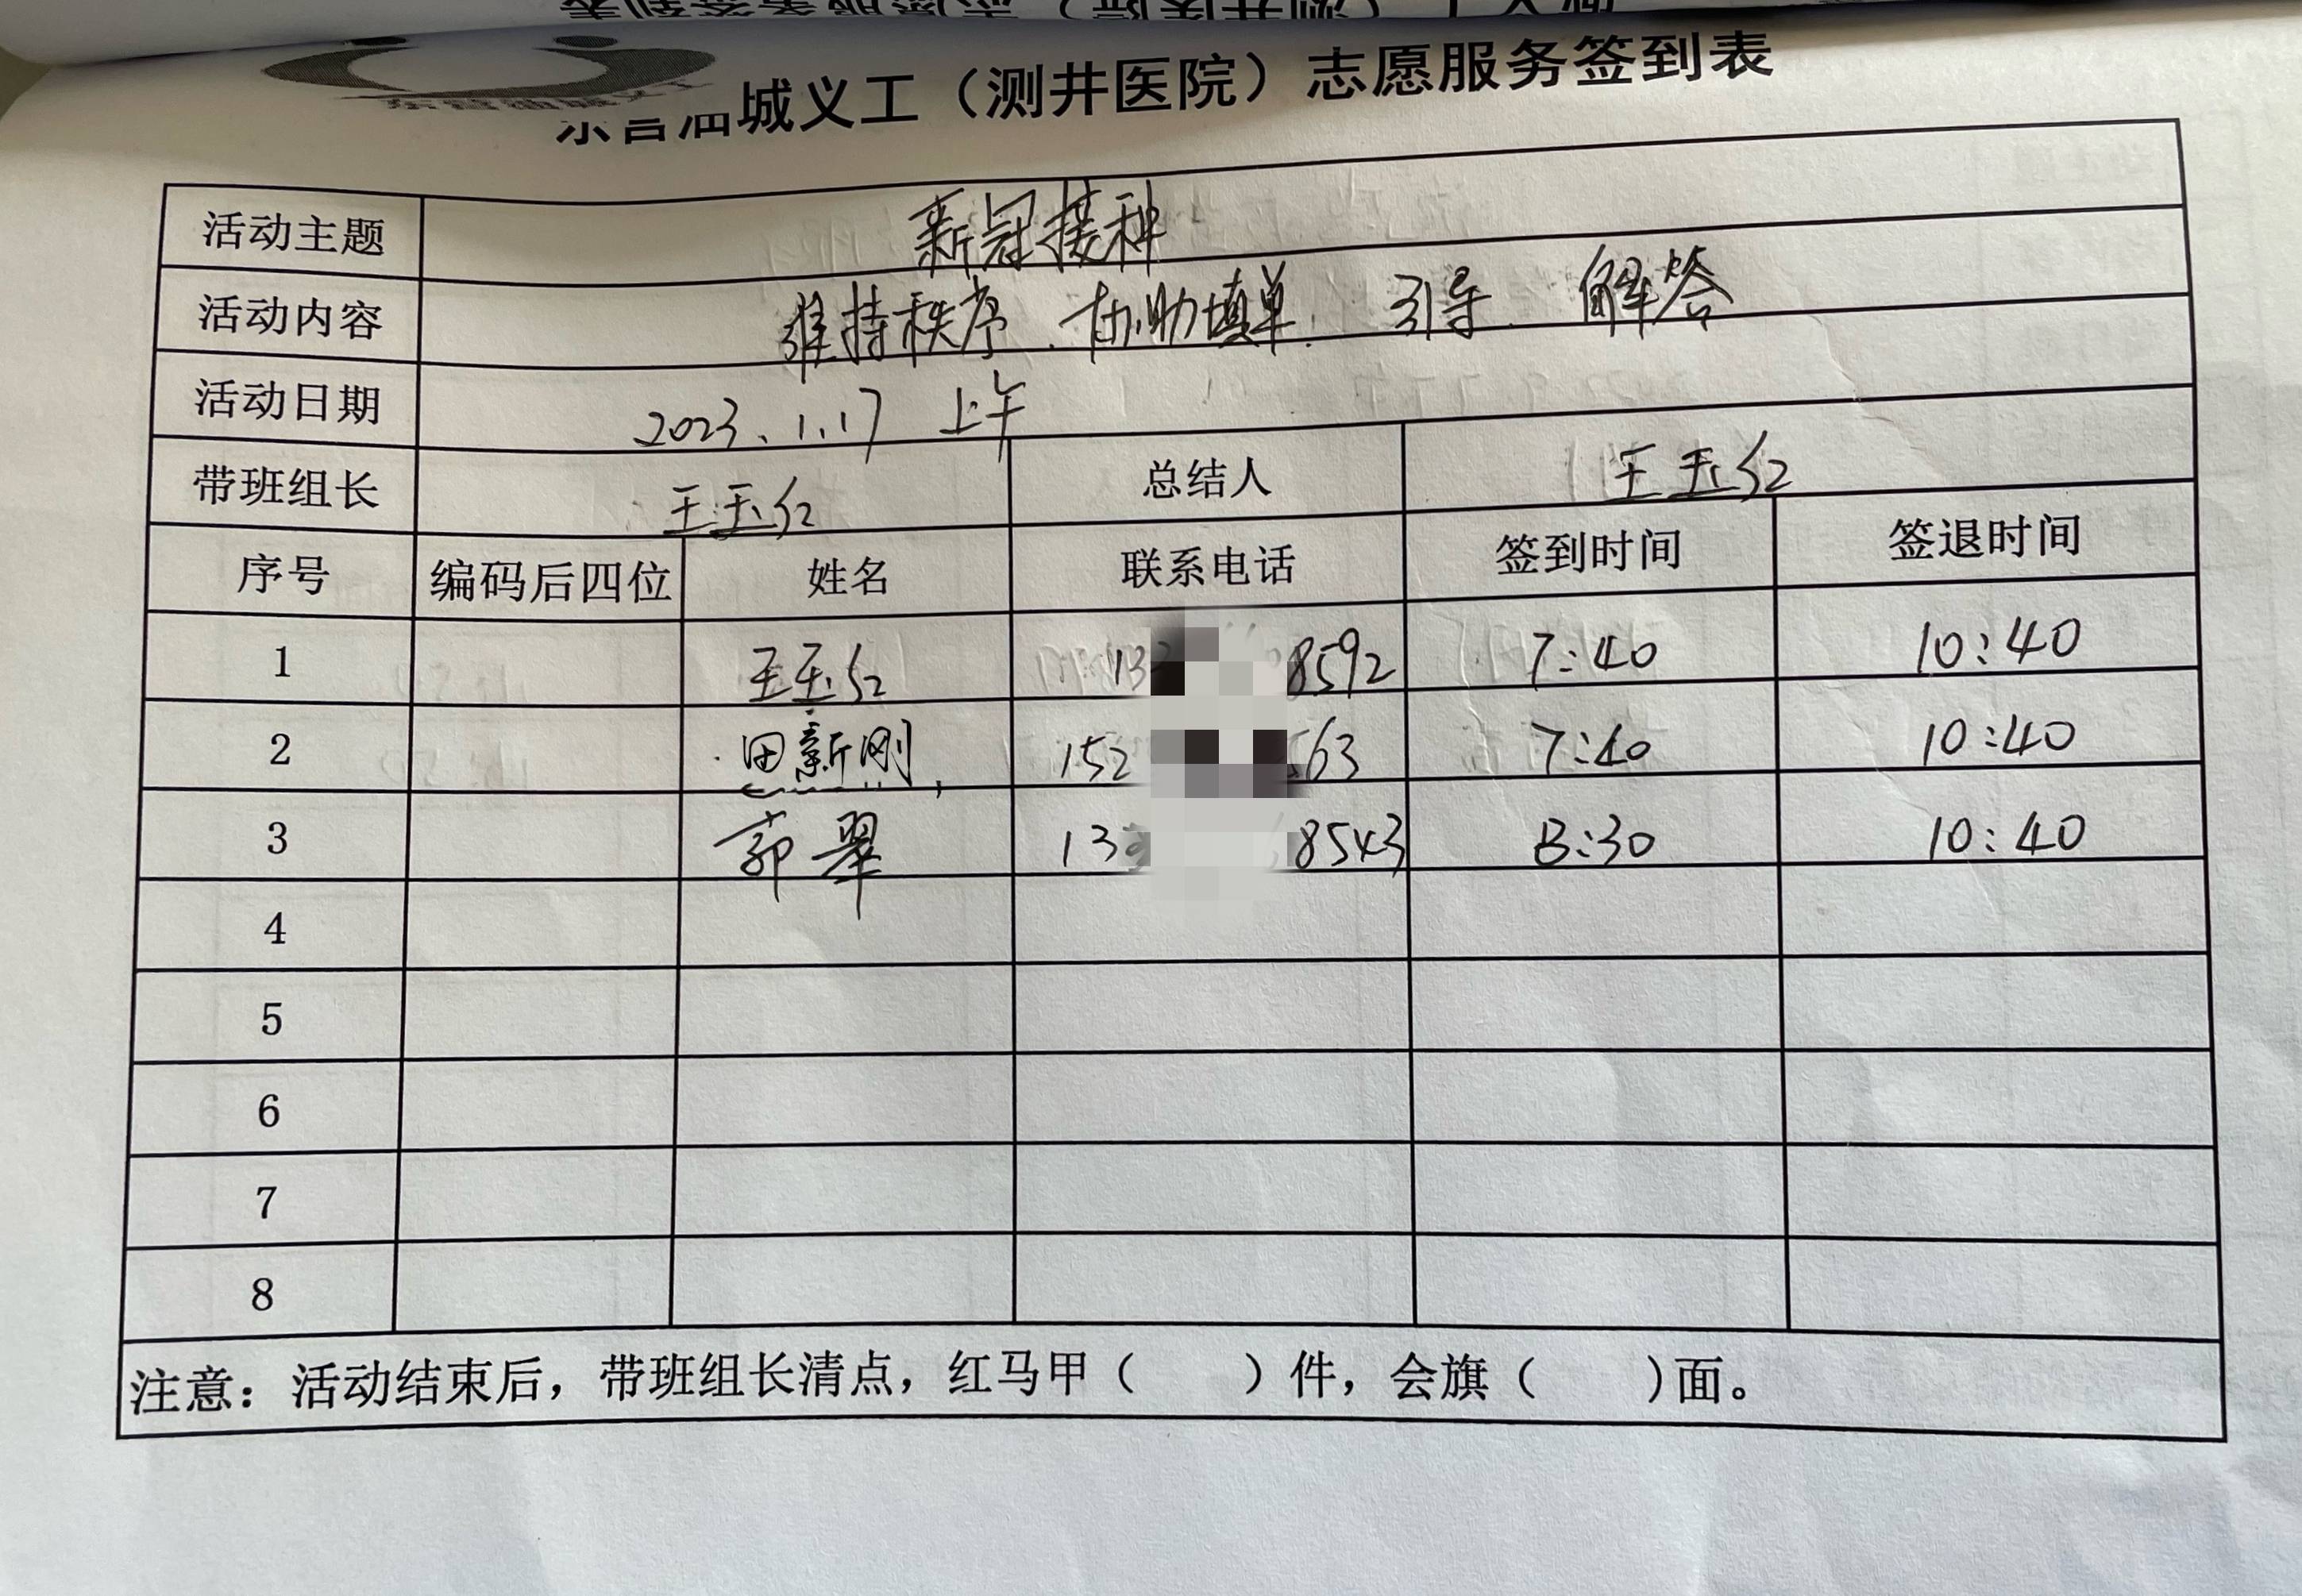 东营油城义工（测井医院）志愿服务签到表
活动主题 新冠接种
活动内容 维持秩序、协助填单、引导、解答
活动日期 2023.1.17 上午
带班组长 王玉红 总结人 王玉红
序号 编码后四位 姓名 联系电话 签到时间 签退时间
1 王玉红 13 8592 7:40 10:40
2 田新刚 152 563 7:40 10:40
3 郭翠 13 8543 8:30 10:40
4
5
6
7
8
注意：活动结束后，带班组长清点，红马甲（ ）件，会旗（ ）面。